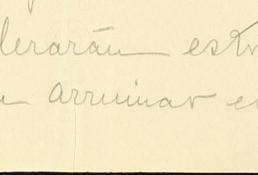 lerarán estr
arruinar e